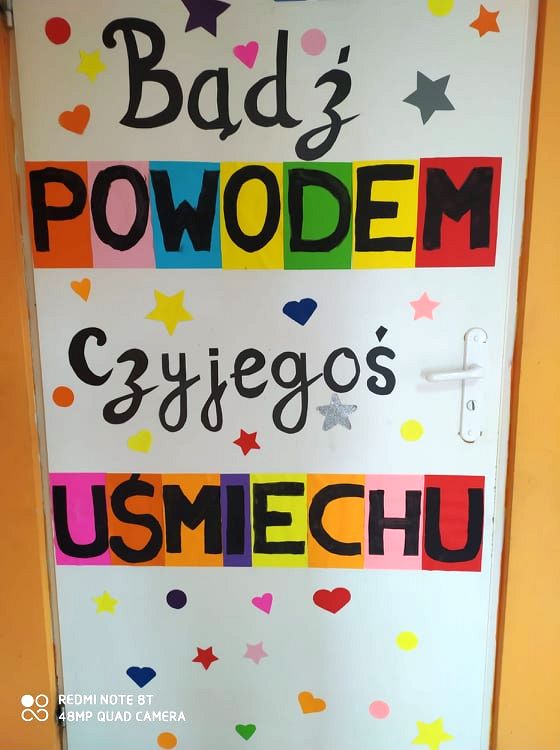 Bądź
POWODEM
Czyjegoś
UŚMIECHU
REDMI NOTE 8T
48MP QUAD CAMERA